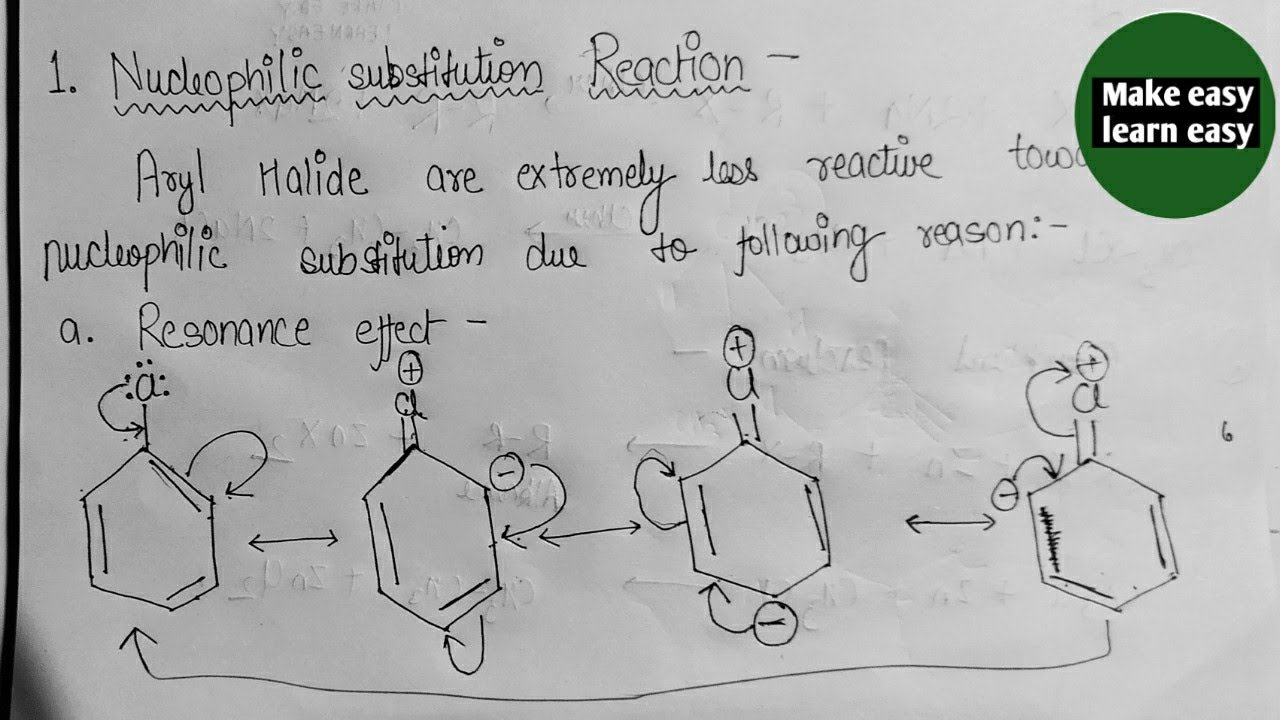 1. Nucleophilic substitution Reaction -
Make easy
learn easy
Aryl Halide are extremely less reactive
nucleophilic substitution due to following reason:-
a. Resonance effect -
:C̈l: Cl Cl Cl